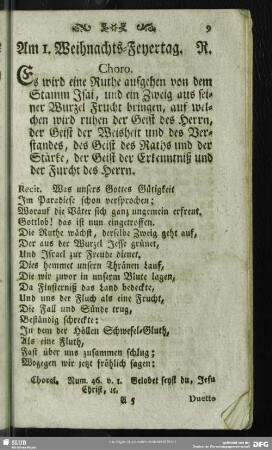 9
Am 1. Weihnachts-Feyertag. R.
Choro.
Es wird eine Ruthe aufgehen von dem
Stamm Isai, und ein Zweig aus sei-
ner Wurzel Frucht bringen, auf wel-
chen wird ruhen der Geist des Herrn,
der Geist der Weisheit und des Ver-
standes, des Geist des Raths und der
Stärke, der Geist der Erkenntniß und
der Furcht des Herrn.
Recit. Was unsers Gottes Gütigkeit
Im Paradiese schon versprochen;
Worauf die Väter sich ganz ungemein erfreut,
Gottlob! das ist nun eingetroffen.
Die Ruthe wächst, derselbe Zweig geht auf,
Der aus der Wurzel Jesse grünet,
Und Israel zur Freude dienet.
Dies hemmet unsern Thränen Lauf,
Die wir zuvor in unserm Blute lagen,
Da Finsterniß das Land bedeckte,
Und uns der Fluch als eine Frucht,
Die Fall und Sünde trug,
Beständig schreckte;
In dem der Höllen Schwefel-Gluth,
Als eine Fluth,
Fast über uns zusammen schlug;
Wogegen wir jetzt fröhlich sagen:
Choral. Num. 46. v. 1. Gelobet seyst du, Jesu
Christ, ꝛc.
A 5 Duetto
SLUB